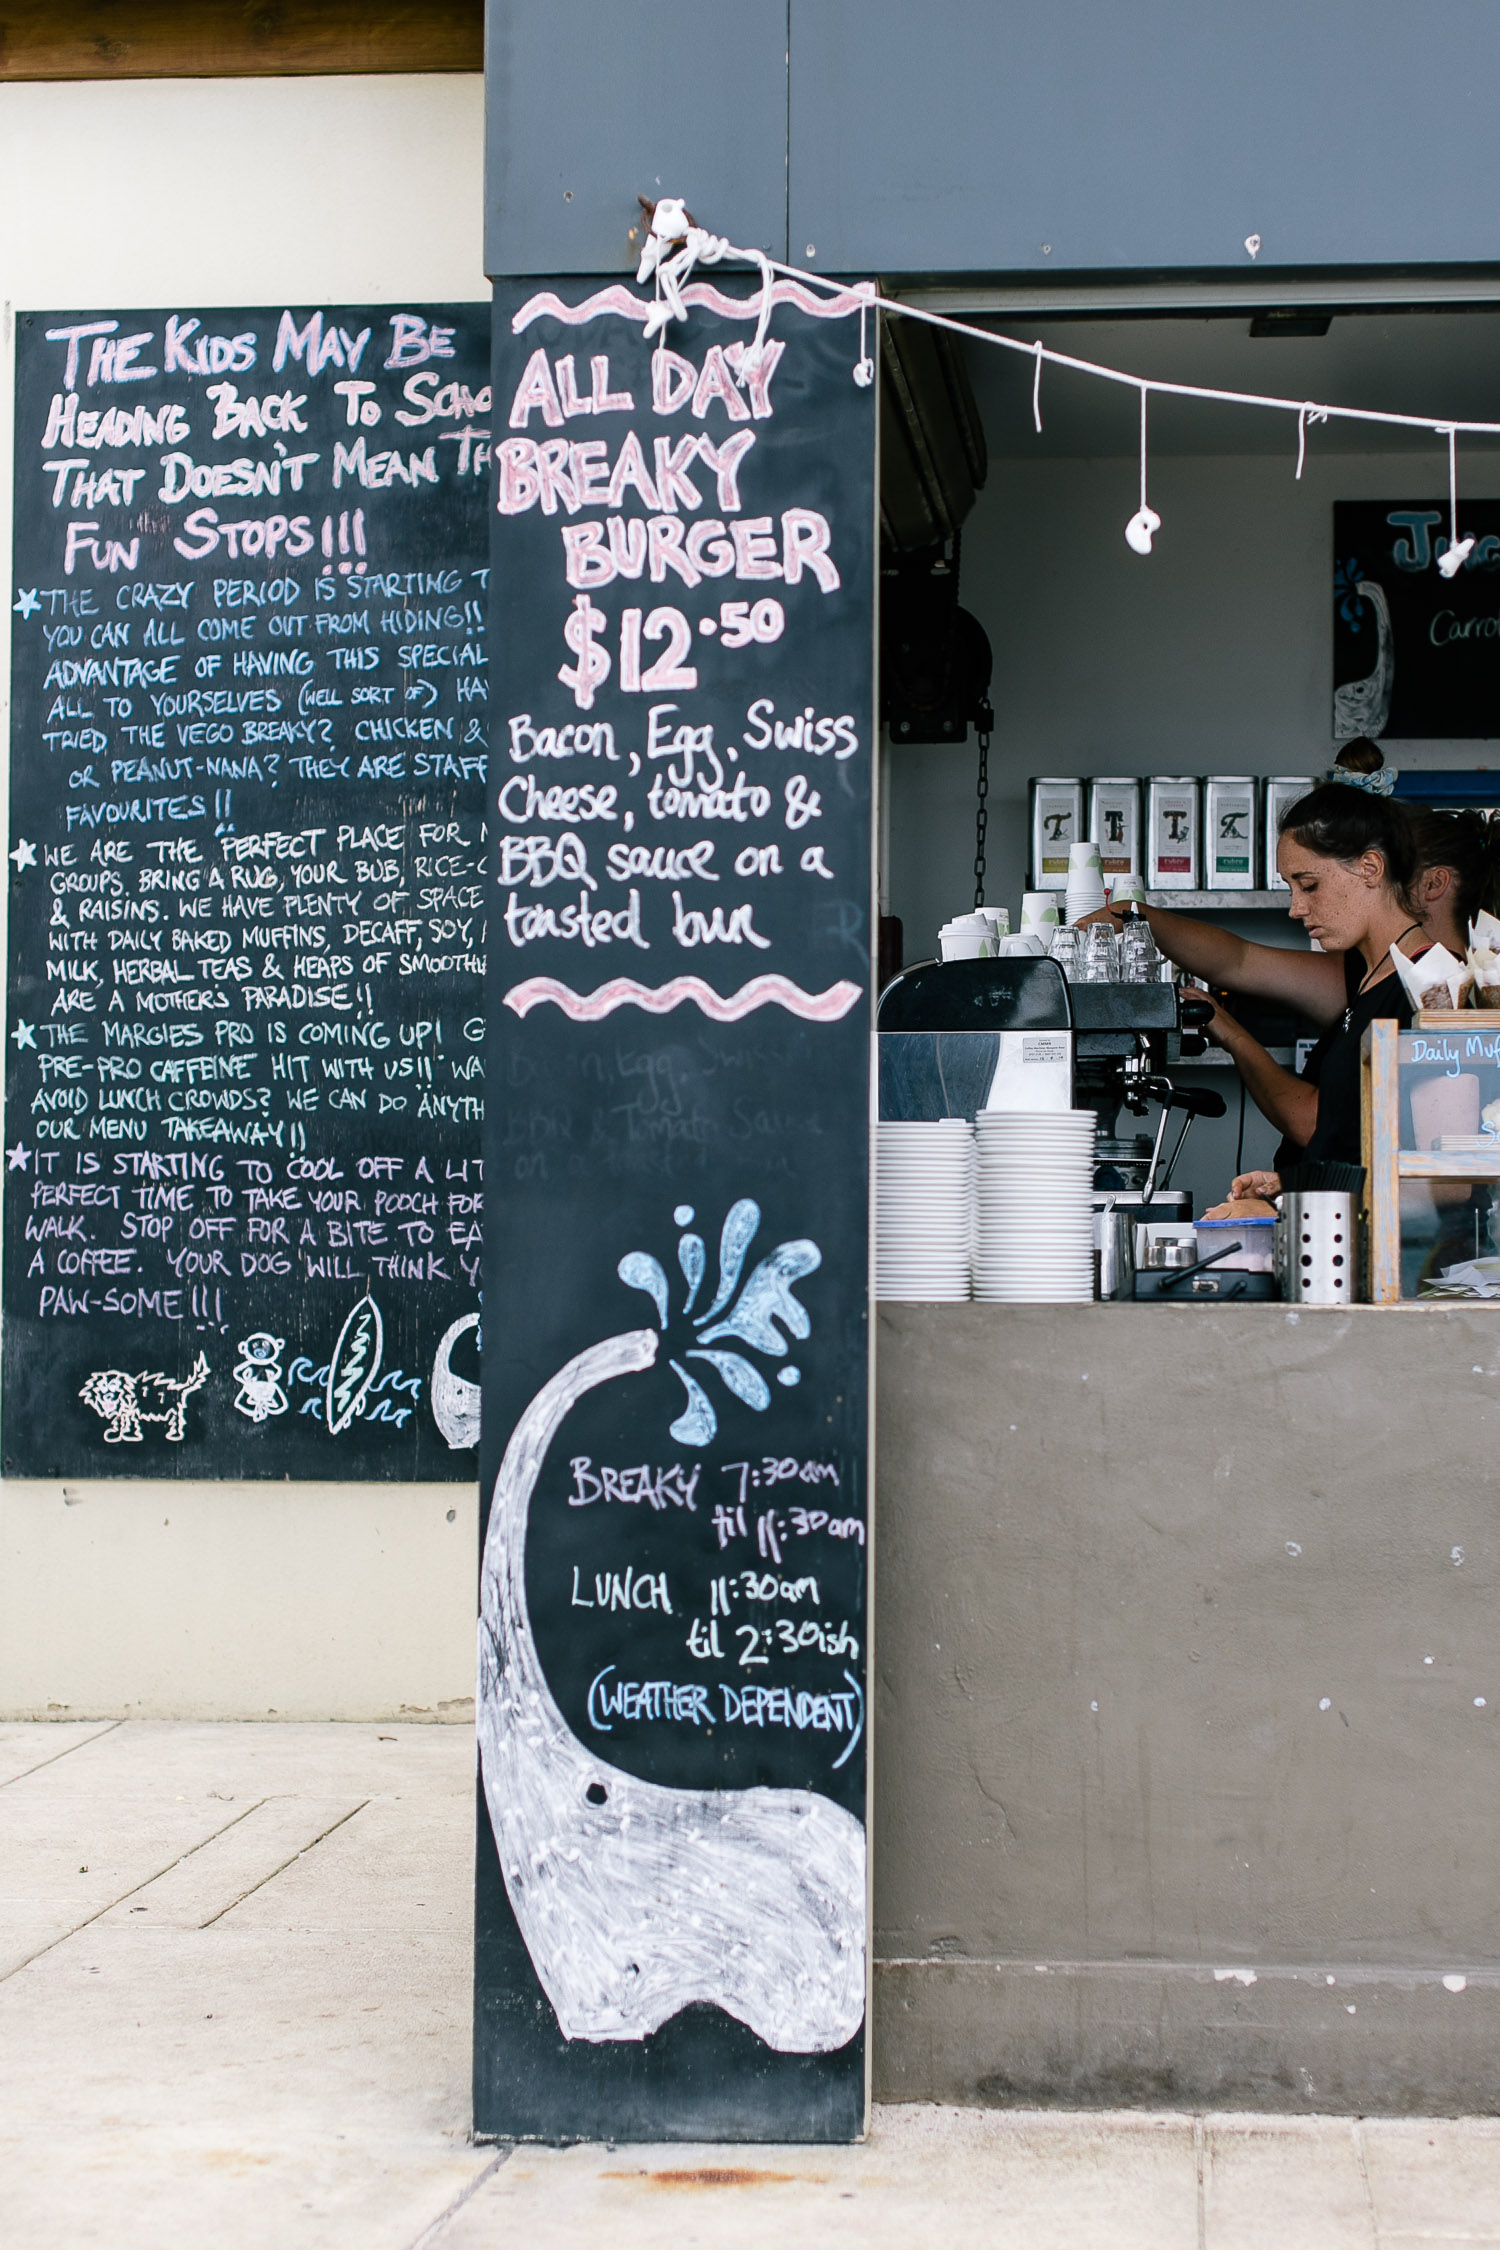 THE KIDS MAY BE
HEADING BACK TO SCHO
THAT DOESN'T MEAN TH
FUN STOPS!!!
THE CRAZY PERIOD IS STARTING T
YOU CAN ALL COME OUT FROM HIDING!!
ADVANTAGE OF HAVING THIS SPECIAL
ALL TO YOURSELVES (WELL SORT OF) HA
TRIED THE VEGO BREAKY? CHICKEN &
OR PEANUT-NANA? THEY ARE STAFF
FAVOURITES!!
WE ARE THE "PERFECT PLACE FOR
GROUPS. BRING A RUG, YOUR BUB, RICE-C
& RAISINS. WE HAVE PLENTY OF SPACE
WITH DAILY BAKED MUFFINS, DECAFF, SOY,
MILK, HERBAL TEAS & HEAPS OF SMOOTHIE
ARE A MOTHER'S PARADISE!!
THE MARGIES PRO IS COMING UP! G
PRE-PRO CAFFEINE HIT WITH US!! WA
AVOID LUNCH CROWDS? WE CAN DO ANYTH
OUR MENU TAKEAWAY!!
IT IS STARTING TO COOL OFF A LIT
PERFECT TIME TO TAKE YOUR POOCH FOR
WALK. STOP OFF FOR A BITE TO EA
A COFFEE. YOUR DOG WILL THINK Y
PAW-SOME!!!
ALL DAY
BREAKY
BURGER
$12.50
Bacon, Egg, Swiss
Cheese, tomato &
BBQ sauce on a
toasted bun
BREAKY 7:30am
til 11:30am
LUNCH 11:30am
til 2:30ish
(WEATHER DEPENDENT)
Carro
T
T
T
T
Daily Muf